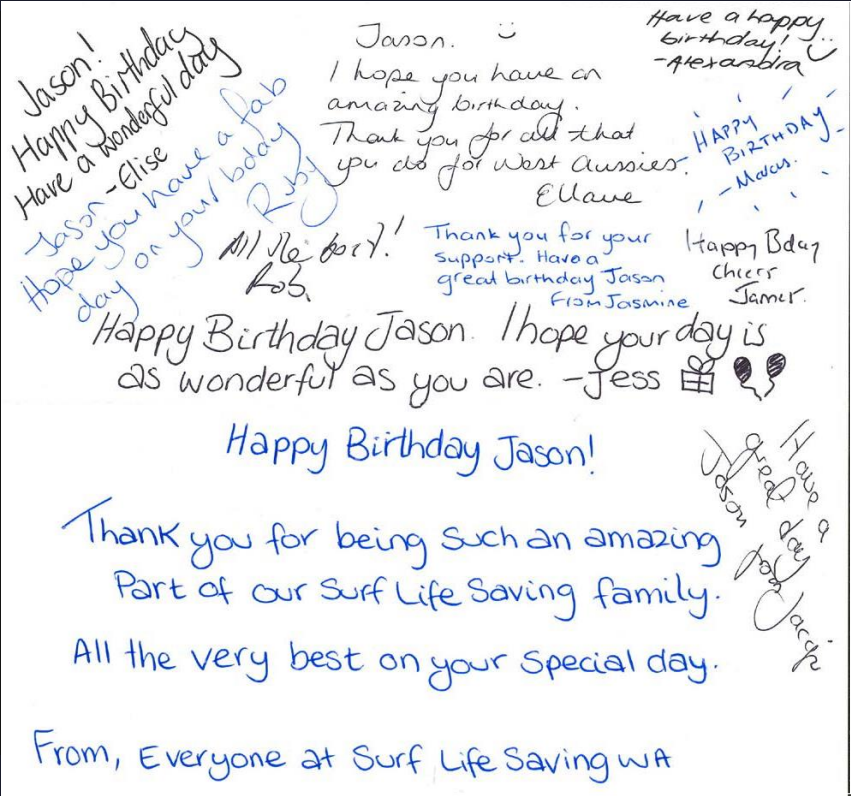 Jason!
Happy Birthday
Have a wonderful day
-Elise
Jason.
I hope you have an
amazing birthday.
Thank you for all that
you do for West Aussies.
Have a happy
birthday!
-Alexandra
HAPPY
BIRTHDAY
- Marcus.
Jason
Hope you have a fab
day on your bday
Ruby
All the best!
Rob.
Thank you for your
support. Have a
great birthday Jason
From Jasmine
Happy Bday
Cheers
James.
Happy Birthday Jason. I hope your day is
as wonderful as you are. -Jess
Happy Birthday Jason!
Thank you for being such an amazing
Part of our Surf Life Saving family.
All the very best on your special day.
From, Everyone at Surf Life Saving WA
Have a
great day
Jason
from